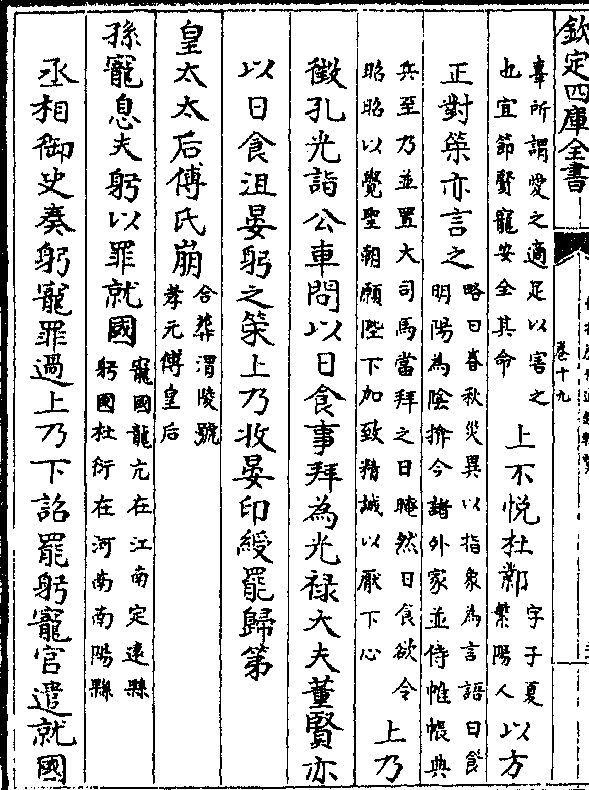 欽定四庫全書
卷十九
辜所謂愛之適足以害之
也宜節賢寵安全其命
上不悅杜鄴
字子夏
繁陽人
以方
正對策亦言之
略曰春秋災異以指象為言語日食
明陽為陰揜今諸外家並侍帷幄典
兵至乃並置大司馬當拜之日晻然日食欲令
昭昭以覺聖朝願陛下加致精誠以厭下心
上乃
徵孔光詣公車問以日食事拜為光禄大夫董賢亦
以日食沮晏躬之策上乃收晏印綬罷歸第
皇太太后傅氏崩
合葬渭陵號
孝元傅皇后
孫寵息夫躬以罪就國
寵國龍亢在江南定遠縣
躬國杜衍在河南南陽縣
丞相御史奏躬寵罪過上乃下詔罷躬寵官遣就國